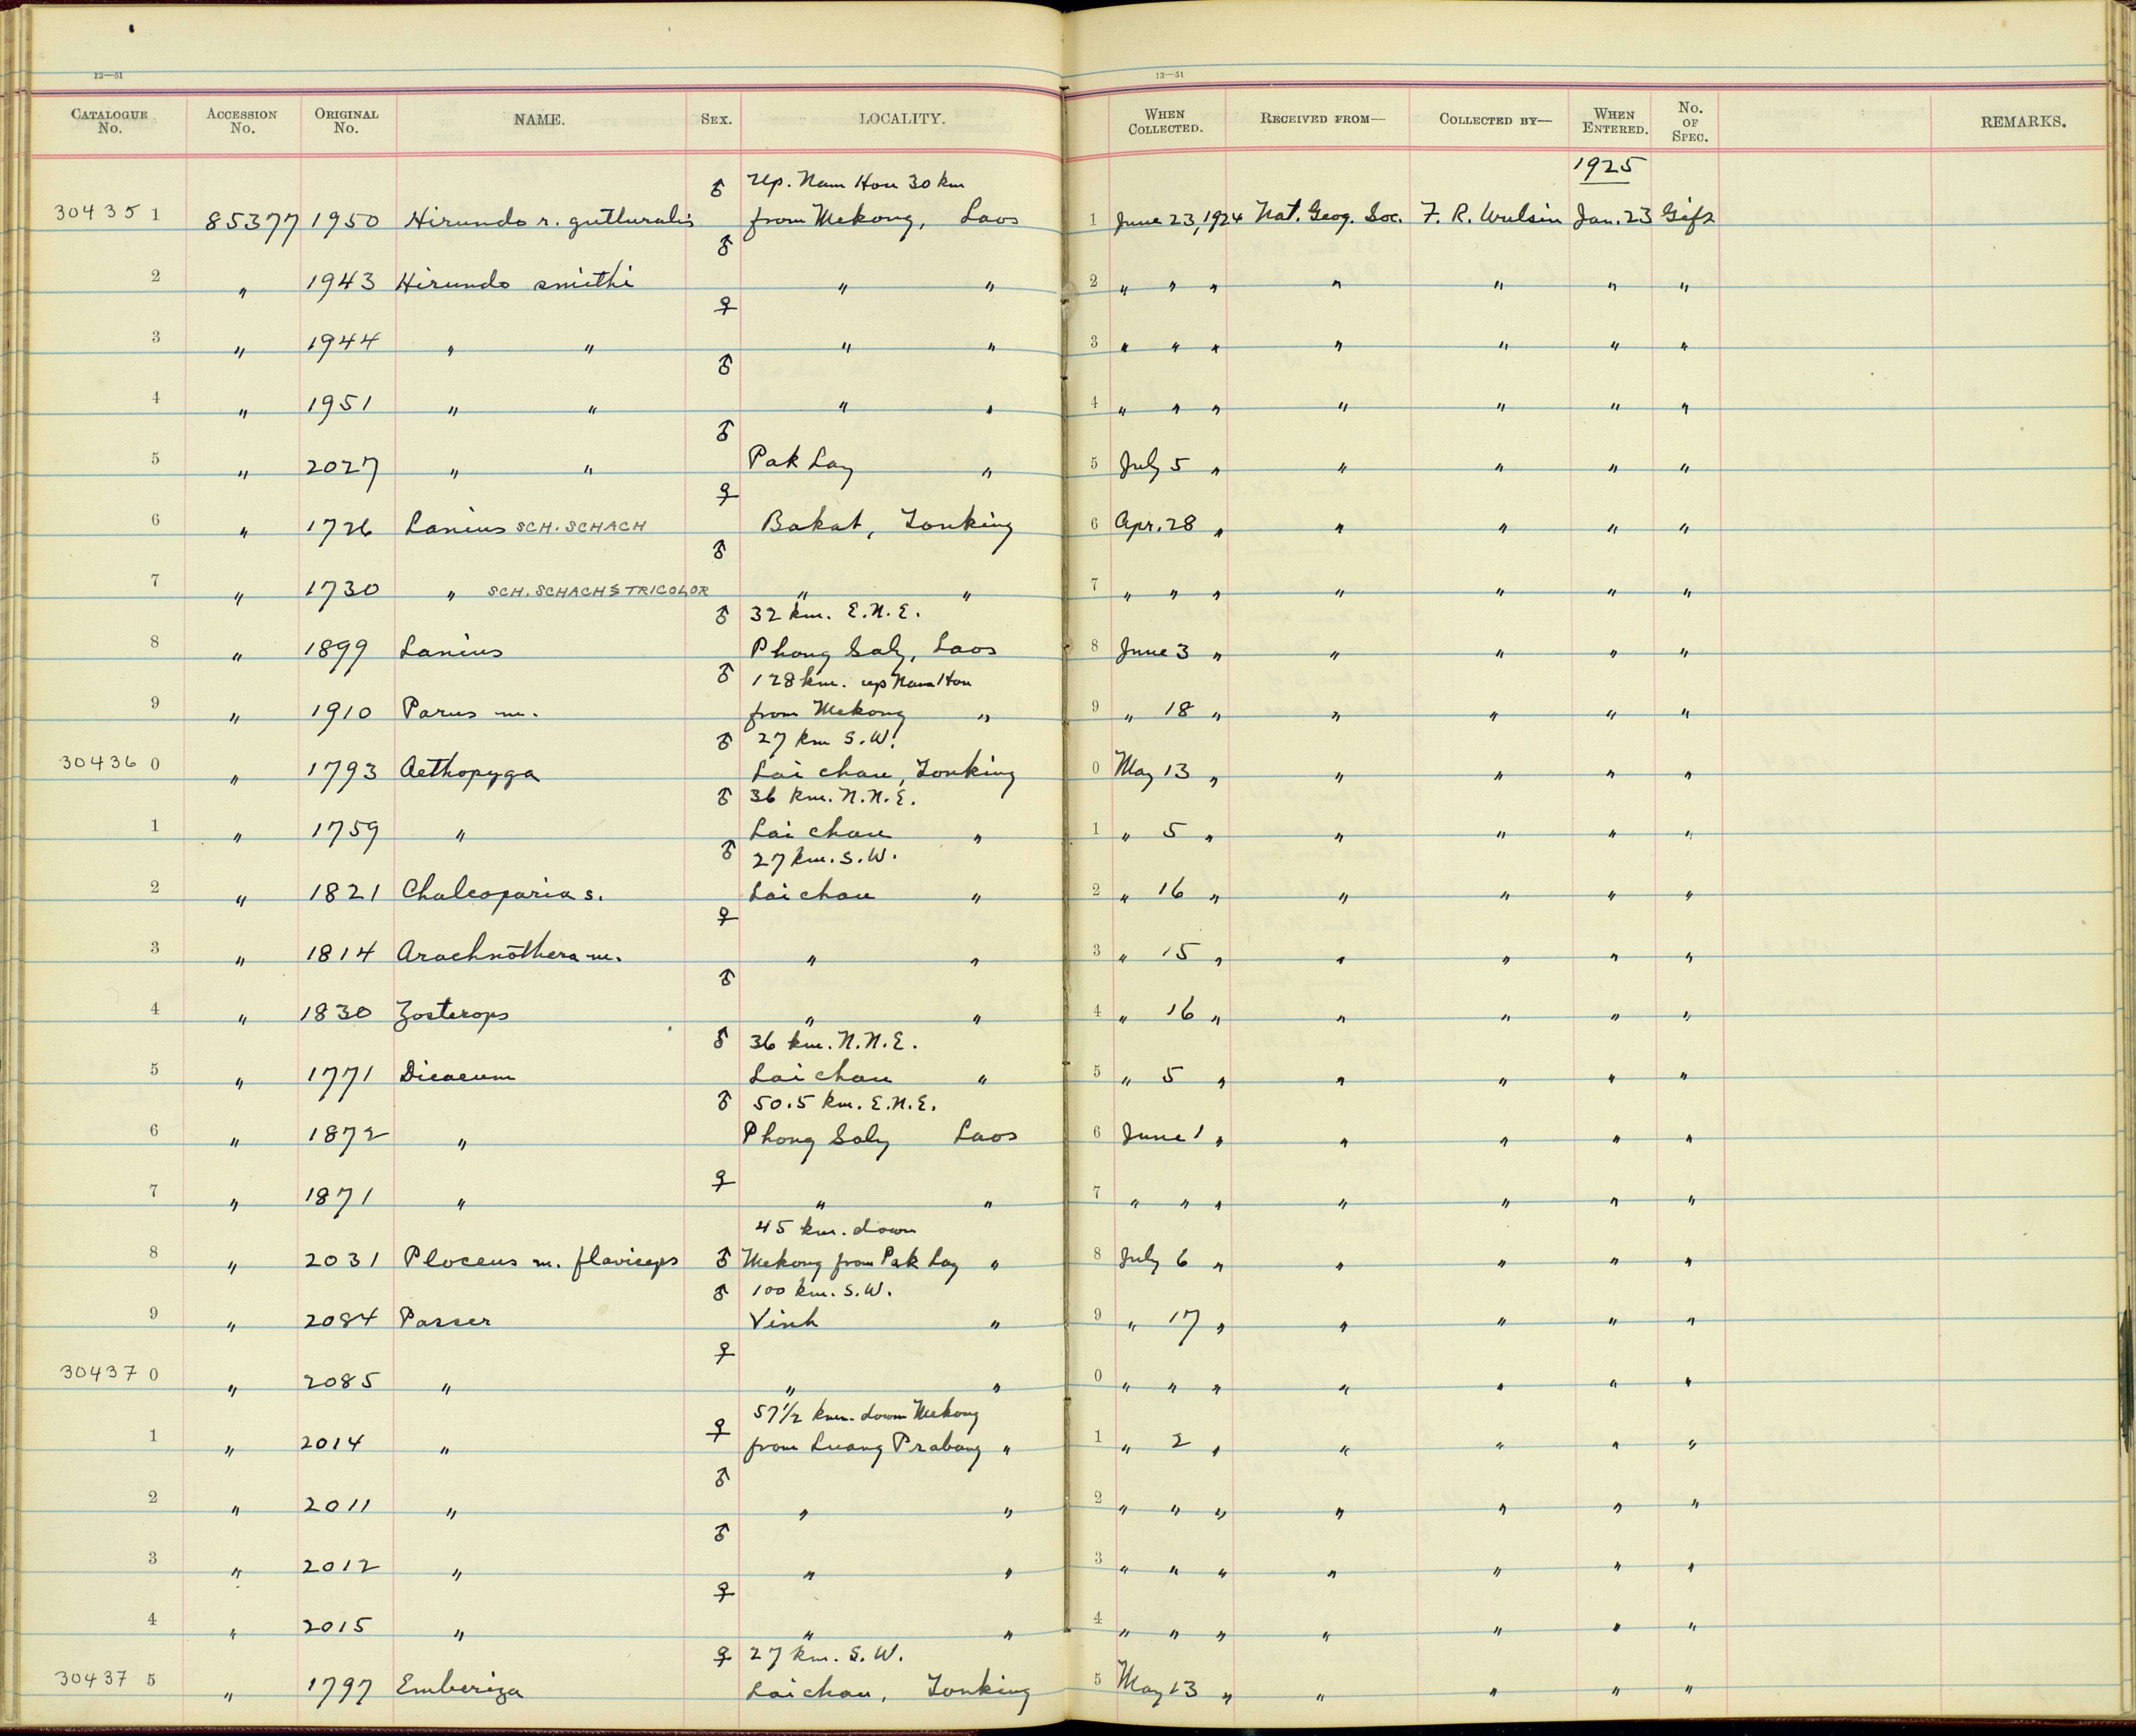 13—51 13—51
CATALOGUE No. ACCESSION No. ORIGINAL No. NAME. SEX. LOCALITY. WHEN COLLECTED. RECEIVED FROM— COLLECTED BY— WHEN ENTERED. No. OF SPEC. REMARKS.
1925
♂ up. Nam Hou 30 km
304351 85377 1950 Hirundo r. gutturalis from Mekong, Laos 1 June 23, 1924 Nat. Geog. Soc. F. R. Wulsin Jan. 23 Gift
♂
2 " 1943 Hirundo smithi " " 2 " " " " " " "
♀
3 " 1944 " " " " 3 " " " " " " "
♂
4 " 1951 " " " " 4 " " " " " " "
♂
5 " 2027 " " Pak Lay " 5 July 5 " " " " "
♀
6 " 1726 Lanius SCH. SCHACH Bakat, Tonking 6 Apr. 28 " " " " "
♂
7 " 1730 " SCH. SCHACH ≤ TRICOLOR " " 7 " " " " " " "
♂ 32 km. E.N.E.
8 " 1899 Lanius Phong Saly, Laos 8 June 3 " " " " "
♂ 128 km. up Nam Hou
9 " 1910 Parus m. from Mekong " 9 " 18 " " " " "
♂ 27 km S.W.
304360 " 1793 Aethopyga Lai chau, Tonking 0 May 13 " " " " "
♂ 36 km. N.N.E.
1 " 1759 " Lai chau " 1 " 5 " " " " "
♂ 27 km. S.W.
2 " 1821 Chalcoparia s. Lai chau " 2 " 16 " " " " "
♀
3 " 1814 Arachnothera m. " " 3 " 15 " " " " "
♂
4 " 1830 Zosterops " " 4 " 16 " " " " "
♂ 36 km. N.N.E.
5 " 1771 Dicaeum Lai chau " 5 " 5 " " " " "
♂ 50.5 km. E.N.E.
6 " 1872 " Phong Saly Laos 6 June 1 " " " " "
♀
7 " 1871 " " " 7 " " " " " " "
45 km. down
8 " 2031 Ploceus m. flaviceps ♂ Mekong from Pak Lay " 8 July 6 " " " " "
♂ 100 km. S.W.
9 " 2084 Passer Vinh " 9 " 17 " " " " "
♀
304370 " 2085 " " " 0 " " " " " " "
57 1/2 km. down Mekong
1 " 2014 " ♀ from Luang Prabang " 1 " 2 " " " " "
♂
2 " 2011 " " " 2 " " " " " " "
♂
3 " 2012 " " " 3 " " " " " " "
♀
4 " 2015 " " " 4 " " " " " " "
♀ 27 km. S.W.
304375 " 1797 Emberiza Laichau, Tonking 5 May 13 " " " " "